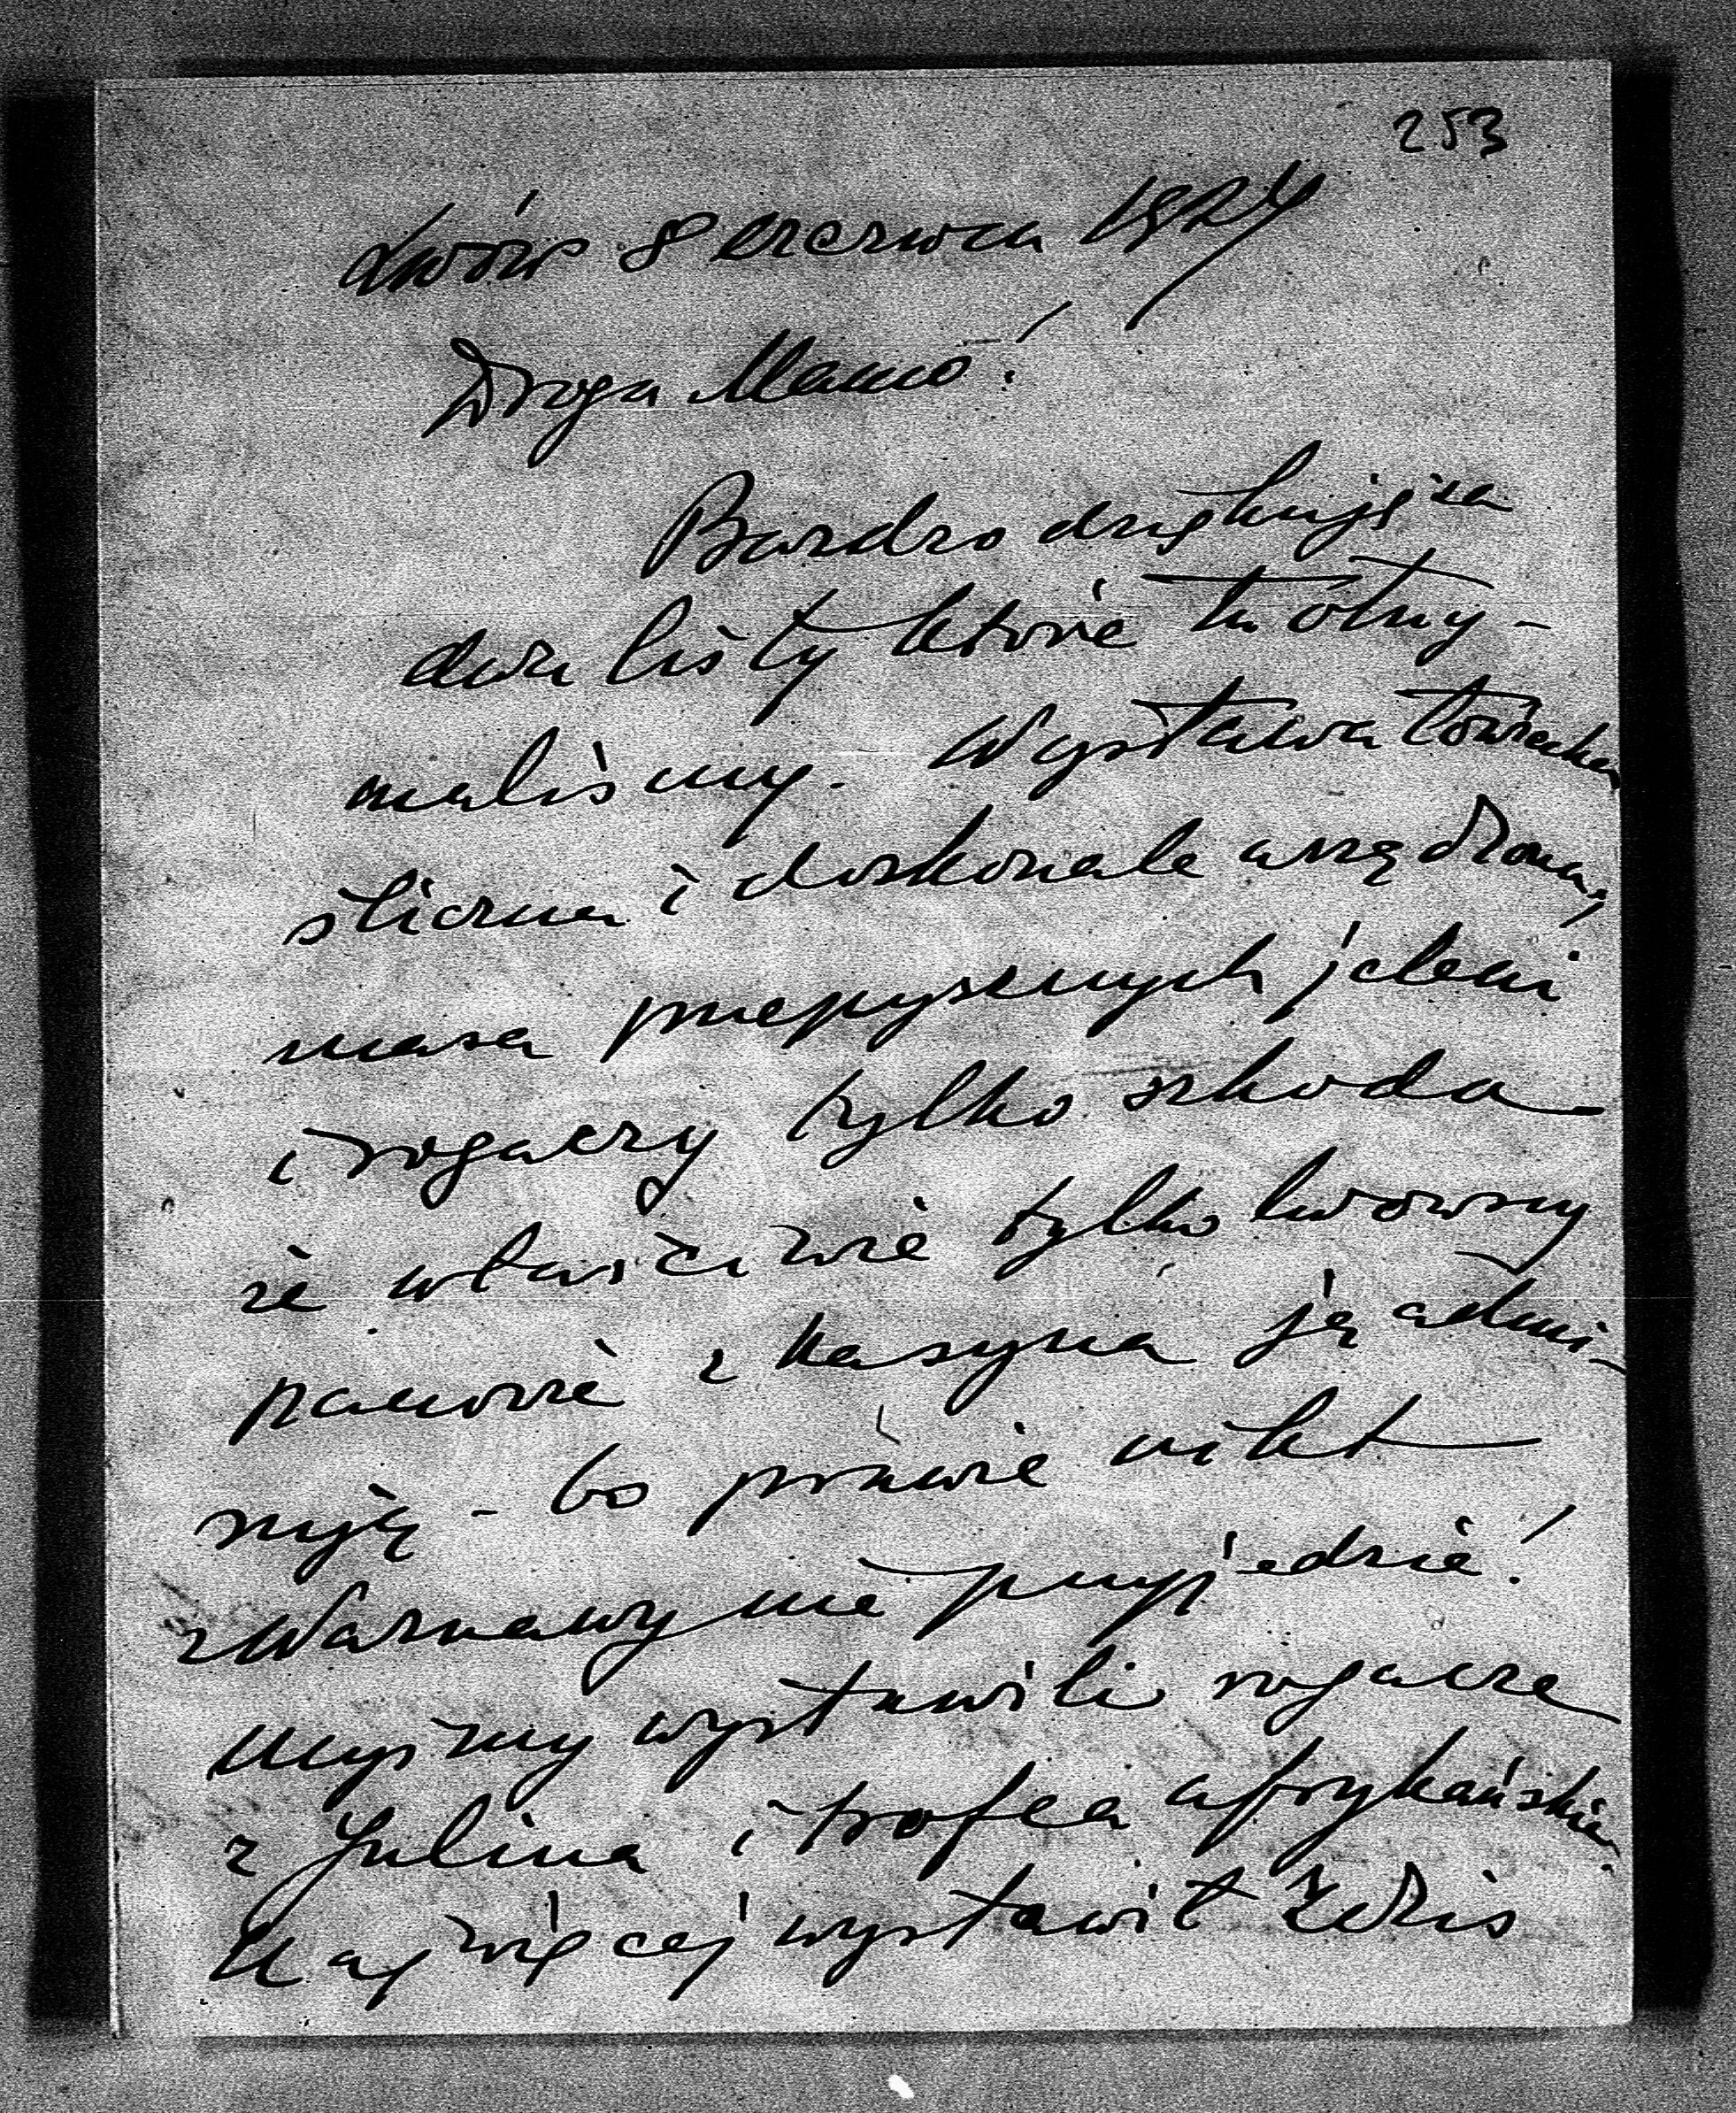 253
Lwów 8 czerwca 1924
Droga Mamo!
Bardzo dziękuję za
dwa listy które tu otrzy-
maliśmy. Wystawa łowiecka
śliczna i doskonale urządzona,
masa przepysznych jeleni
i rogaczy tylko szkoda
że właściwie tylko lwowscy
panowie z kasyna ją admi-
rują - bo prawie nikt
z Warszawy nie przyjedzie!
Myśmy wystawili rogacze
z Julina i trofea afrykańskie,
Najwięcej wystawił